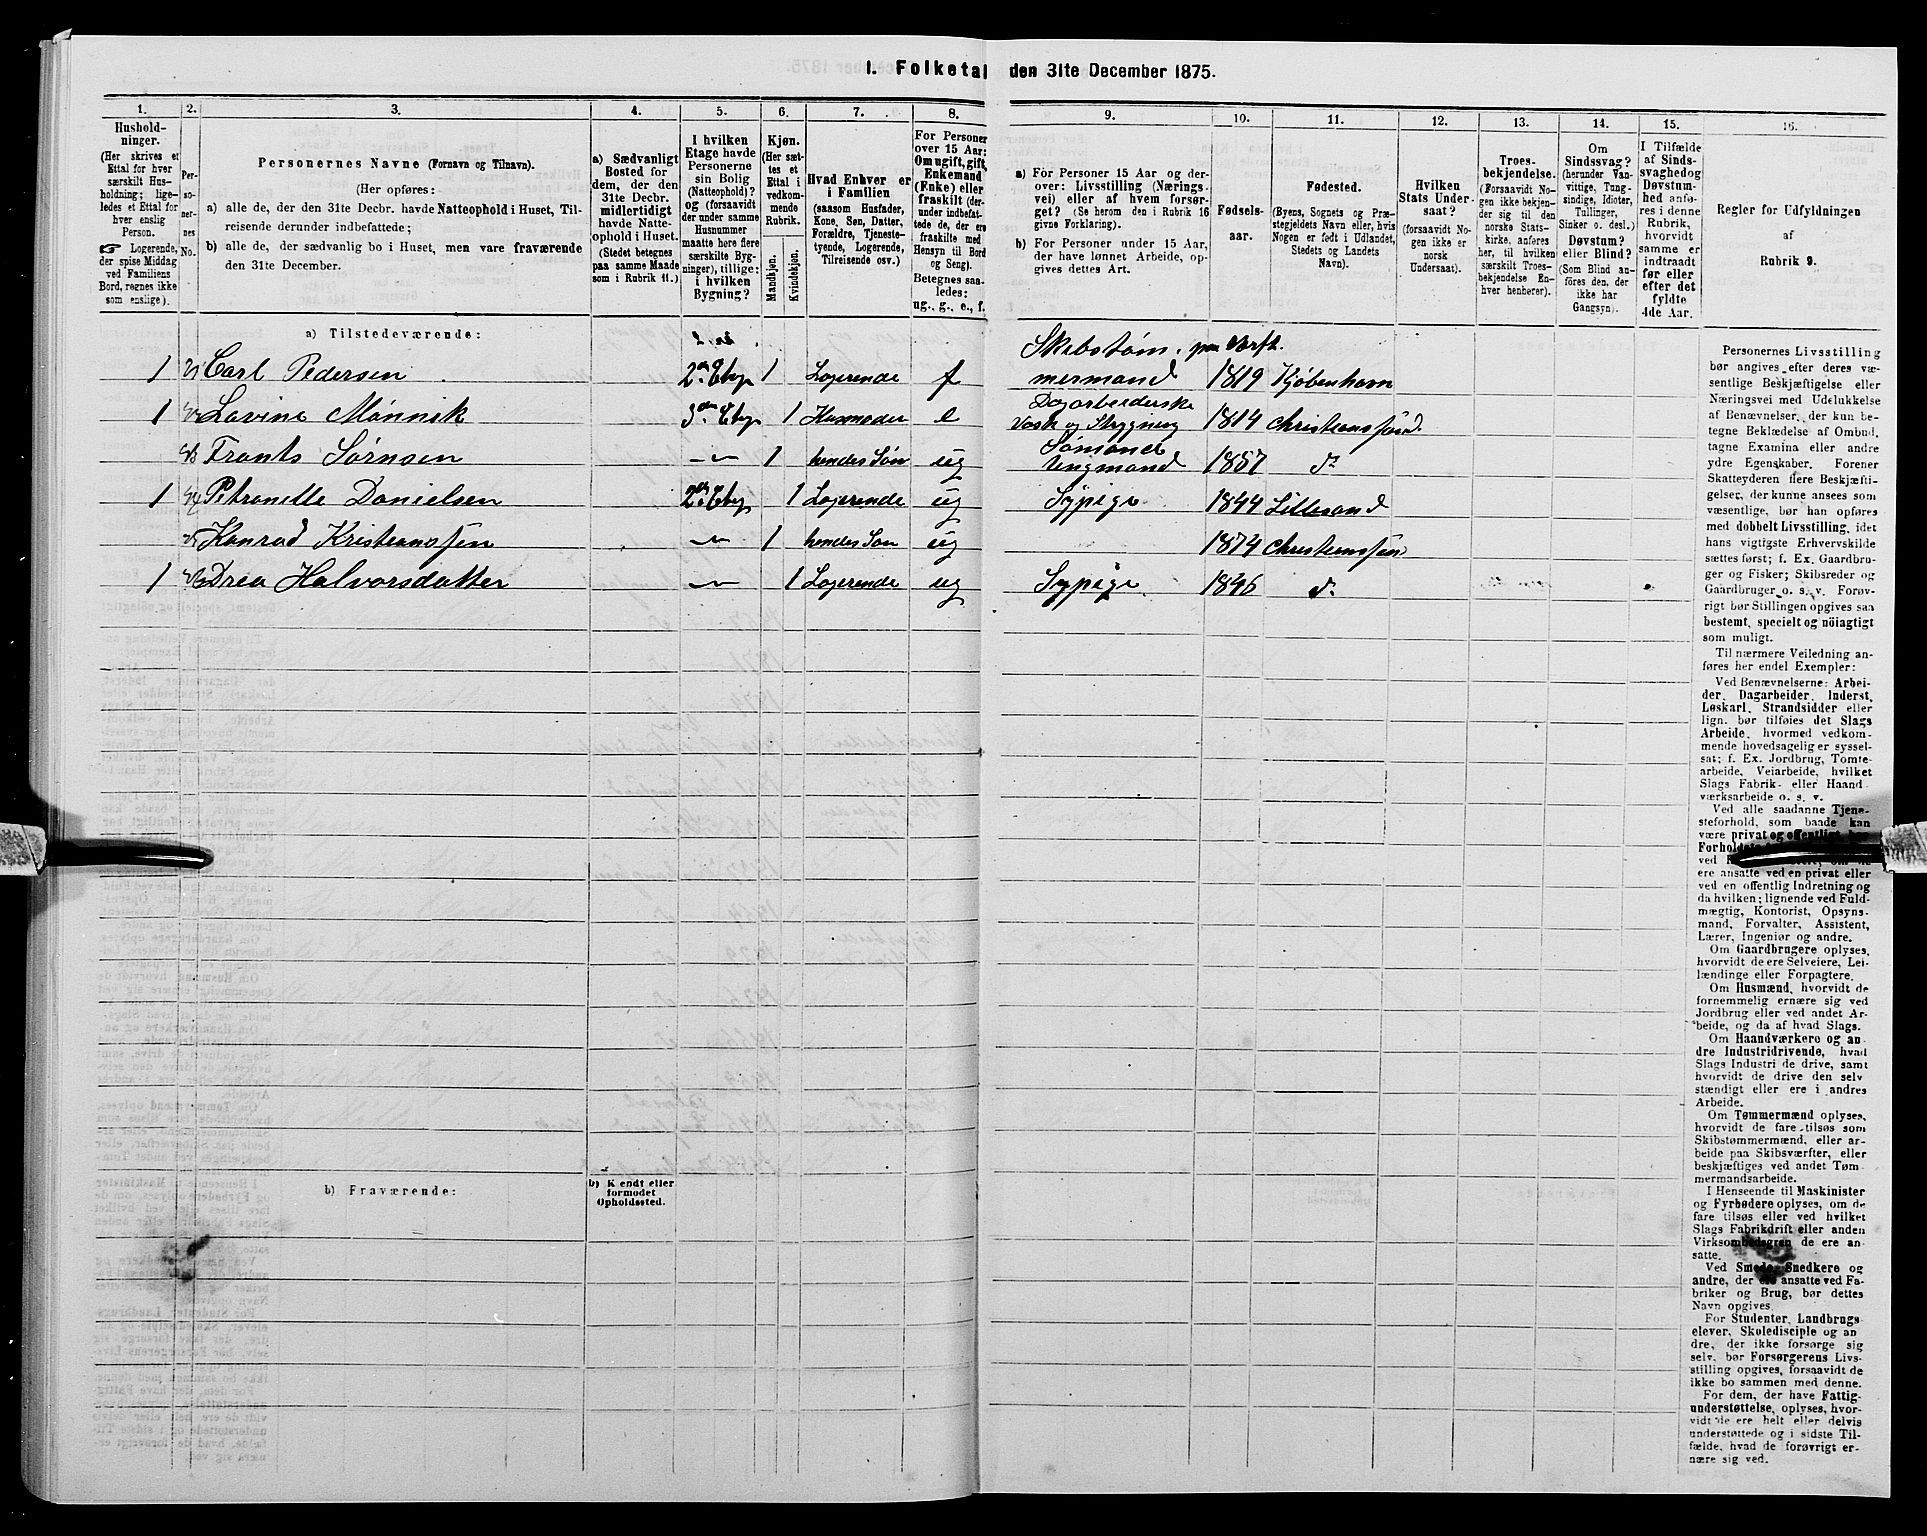 I. Folketal den 31te December 1875.
1. 2. 3. 4. 5. 6. 7. 8. 9. 10. 11. 12. 13. 14. 15. 16.
Hushold-
ninger.
(Her skrives et
Ettal for hver
særskilt Hus-
holdning; lige-
ledes et Ettal for
hver enslig
Person.
☞ Logerende,
der spise Middag
ved Familiens
Bord, regnes ikke
som enslige).
Per-
so-
ner-
nes
No.
Personernes Navne (Fornavn og Tilnavn).
(Her opføres:
a) alle de, der den 31te Decbr. havde Natteophold i Huset, Til-
reisende derunder indbefattede;
b) alle de, der sædvanlig bo i Huset, men vare fraværende
den 31te December.
a) Sædvanligt
Bosted for
dem, der den
31te Decbr.
midlertidigt
havde Natte-
ophold i Huset.
(Stedet betegnes
paa samme Maade
som i Rubrik 11.)
I hvilken
Etage havde
Personerne
sin Bolig
(Natteophold)?
og (forsaavidt
der under samme
Husnummer
maatte høre flere
særskilte Byg-
ninger), tillige:
i hvilken
Bygning?
Kjøn.
(Her sæt-
tes et
Ettal i
vedkom-
mende
Rubrik.
Mandkjøn.
Kvindekjøn.
Hvad Enhver er
i Familien
(saasom Husfader,
Kone, Søn, Datter,
Forældre, Tjeneste-
tyende, Logerende,
Tilreisende osv.)
For Personer
over 15 Aar:
Om ugift, gift,
Enkemand
(Enke) eller
fraskilt (der-
under indbefat-
tede de, der ere
fraskilte med
Hensyn til Bord
og Seng).
Betegnes saa-
ledes:
ug., g., e., f.
a) For Personer 15 Aar og der-
over: Livsstilling (Nærings-
vei) eller af hvem forsør-
get? (Se herom den i Rubrik 16
givne Forklaring).
b) For Personer under 15 Aar,
der have lønnet Arbeide, op-
gives dettes Art.
Fødsels-
aar.
Fødested.
(Byens, Sognets og Præ-
stegjeldets Navn eller, hvis
Nogen er født i Udlandet,
Stedets og Landets
Navn).
Hvilken
Stats Under-
saat?
(forsaavidt No-
gen ikke er
norsk
Undersaat).
Troes-
bekjendelse.
(Forsaavidt No-
gen ikke bekjen-
der sig til den
norske Stats-
kirke, anføres
her, til hvilken
særskilt Troes-
bekjendelse En-
hver henhører).
Om
Sindssvag?
(herunder Van-
vittige, Tung-
sindige, Idioter,
Tullinger,
Sinker o. desl.)
Døvstum?
eller Blind?
(Som Blind an-
føres den, der
ikke har
Gangsyn).
I Tilfælde
af Sinds-
svaghed og
Døvstum-
hed anfø-
res i denne
Rubrik,
hvorvidt
samme er
indtraadt
før eller
efter det
fyldte
4de Aar.
Regler for Udfyldningen
af
Rubrik 9.
a) Tilstedeværende:
Skibstøm. paa Værft.
1 Carl Pedersen 2den Etag 1 Logerende f mermand 1819 Kjøbenhavn
Dagarbeiderske
1 Lovine Mønnik 3den Etag 1 Husmoder e Vask og Strygning 1814 Christianssand
Sømand
Frants Sørnsen 1 hendes Søn ug Ungmand 1857 do
1 Petronelle Danielsen 2den Etag 1 Logerende ug Sypige 1844 Lillesand
Konrad Kristianssen 1 hendes Søn ug 1874 Christianssan
1 Drea Halvorsdatter 1 Logerende ug Sypige 1846 do
b) Fraværende:
b) Kjendt eller
formodet
Opholdssted.
Personernes Livsstilling
bør angives efter deres væ-
sentlige Beskjæftigelse eller
Næringsvei med Udelukkelse
af Benævnelser, der kun be-
tegne Beklædelse af Ombud,
tagne Examina eller andre
ydre Egenskaber. Forener
Skatteyderen flere Beskjæfti-
gelser, der kunne ansees som
væsentlige, bør han opføres
med dobbelt Livsstilling, idet
hans vigtigste Erhvervskilde
sættes først; f. Ex. Gaardbru-
ger og Fisker; Skibsreder og
Gaardbruger o. s. v. Forøv-
rigt bør Stillingen opgives saa
bestemt, specielt og nöiagtigt
som muligt.
Til nærmere Veiledning an-
føres her endel Exempler:
Ved Benævnelserne: Arbei-
der, Dagarbeider, Inderst,
Løskarl, Strandsidder eller
lign. bør tilføies det Slags
Arbeide, hvormed vedkom-
mende hovedsagelig er syssel-
sat; f. Ex. Jordbrug, Tomte-
arbeide, Veiarbeide, hvilket
Slags Fabrik- eller Haand-
værksarbeide o. s. v.
Ved alle saadanne Tjene-
steforhold, som baade kan
være privat og offentligt, bør
ere ansatte ved en privat eller
ved en offentlig Indretning og
da hvilken; lignende ved Fuld-
mægtig, Kontorist, Opsyns-
mand, Forvalter, Assistent,
Lærer, Ingeniør og andre.
Om Gaardbrugere oplyses,
hvorvidt de ere Selveiere, Lei-
lændinge eller Forpagtere.
Om Husmænd, hvorvidt de
fornemmelig ernære sig ved
Jordbrug eller ved andet Ar-
beide, og da af hvad Slags.
Om Haandværkere og an-
dre Industridrivende, hvad
Slags Industri de drive, samt
hvorvidt de drive den selv-
stændigt eller ere i andres
Arbeide.
Om Tømmermænd oplyses,
hvorvidt de fare tilsøs som
Skibstømmermænd, eller ar-
beide paa Skibsværfter, eller
beskjæftiges ved andet Tøm-
mermandsarbeide.
I Henseende til Maskinister
og Fyrbødere oplyses, om de
fare tilsøs eller ved hvilket
Slags Fabrikdrift eller anden
Virksomhedsgren de ere an-
satte.
Ved Smede, Snedkere og
andre, der ere ansatte ved Fa-
briker og Brug, bør dettes
Navn opgives.
For Studenter, Landbrugs-
elever, Skoledisciple og an-
dre, der ikke forsørge sig
selv, bør Forsørgerens Livs-
stilling opgives, forsaavidt de
ikke bo sammen med denne.
For dem, der have Fattig-
understøttelse, oplyses, hvor-
vidt de ere helt eller delvis
understøttede og i sidste Til-
fælde, hvad de forøvrigt er-
nære sig ved.